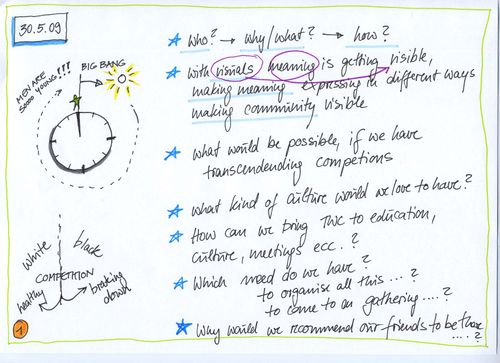 30.5.09
BIG BANG
MEN ARE
SOOO YOUNG!!!
white
black
COMPETITION
healthy
breaking
down
1
who? → why/what? → how?
with visuals meaning is getting visible,
making meaning expressing in different ways
making community visible
what would be possible, if we have
transcendending competions
what kind of culture would we love to have?
How can we bring TWC to education,
culture, meetings ecc.?
Which need do we have?
to organise all this...?
to come to an gathering....?
Why would we recommend our friends to be there
....?